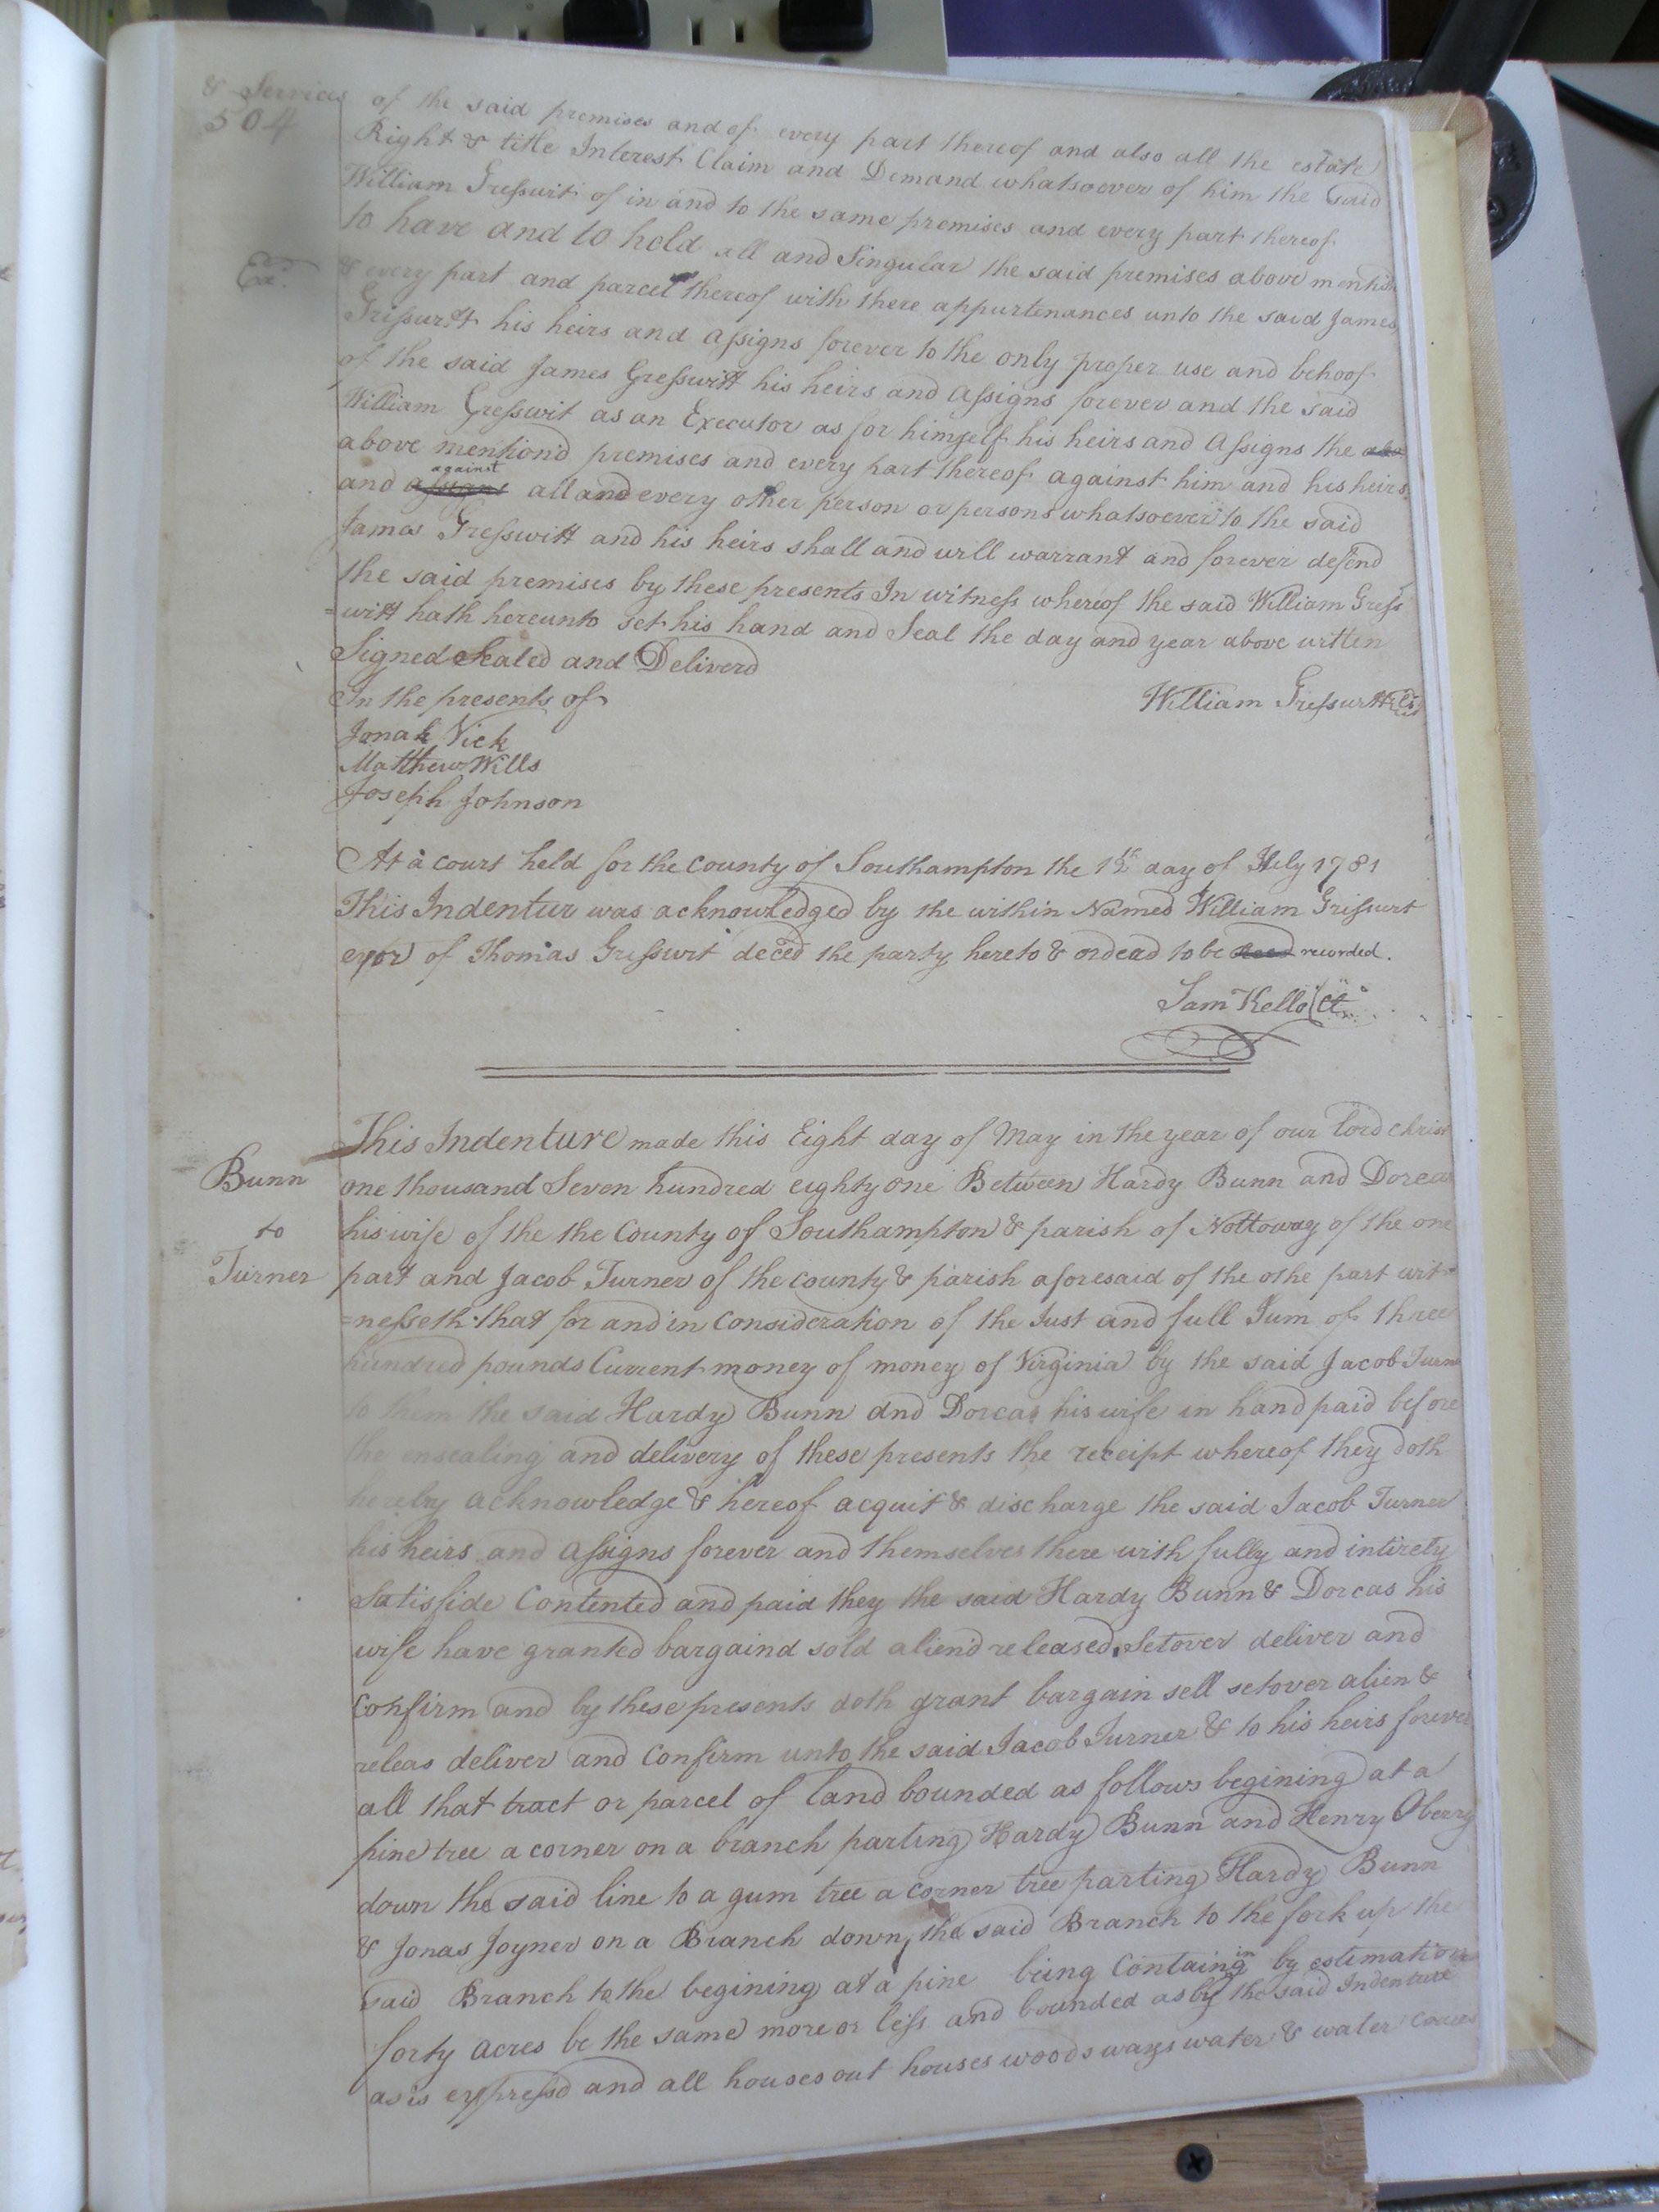 & Services of the said premises and of every part thereof and also all the estate
504
Right & title Interest Claim and Demand whatsoever of him the said
William Gresswit of in and to the same premises and every part thereof
to have and to hold all and Singular the said premises above mention
Ex.
& every part and parcel thereof with there appurtenances unto the said James
Grisswit his heirs and assigns forever to the only proper use and behoof
of the said James Gresswitt his heirs and assigns forever and the said
William Gresswit as an Executor as for himself his heirs and assigns the abo
above mention'd premises and every part thereof against him and his heirs
against
and assigns all and every other person or persons whatsoever to the said
James Gresswitt and his heirs shall and will warrant and forever defend
the said premises by these presents In witness whereof the said William Gress
=witt hath hereunto set his hand and Seal the day and year above written
Signed Sealed and Deliverd
In the presents of
William Grisswitt
Jonah Vick
Matthew Wills
Joseph Johnson
At a court held for the county of Southampton the 12th day of July 1781
This Indentur was acknowledged by the within Named William Grisswit
exor of Thomas Grisswit deced the party hereto & ordead to be recorded.
Sam Kello Ct
This Indenture made this Eight day of May in the year of our lord christ
Bunn
one thousand Seven hundred eighty one Between Hardy Bunn and Dorcas
to
his wife of the the County of Southampton & parish of Nottoway of the one
Turner
part and Jacob Turner of the county & parish aforesaid of the othe part wit=
=nesseth that for and in Consideration of the Just and full Sum of three
hundred pounds Current money of money of Virginia by the said Jacob Turne
to them the said Hardy Bunn and Dorcas his wife in hand paid before
the ensealing and delivery of these presents the receipt whereof they doth
hereby acknowledge & hereof acquit & discharge the said Jacob Turner
his heirs and assigns forever and themselves there with fully and intirety
Satisfide Contented and paid they the said Hardy Bunn & Dorcas his
wife have granted bargaind sold aliend released Setover deliver and
Confirm and by these presents doth grant bargain sell setover alien &
releas deliver and Confirm unto the said Jacob Turner & to his heirs forever
all that tract or parcel of land bounded as follows begining at a
pine tree a corner on a branch parting Hardy Bunn and Henry Oberry
down the said line to a gum tree a corner tree parting Hardy Bunn
& Jonas Joyner on a Branch down the said Branch to the fork up the
said Branch to the begining at a pine being Containg by estimation
in
forty acres be the same more or less and bounded as by the said Indenture
as is expressd and all houses out houses woods ways water & water Courses